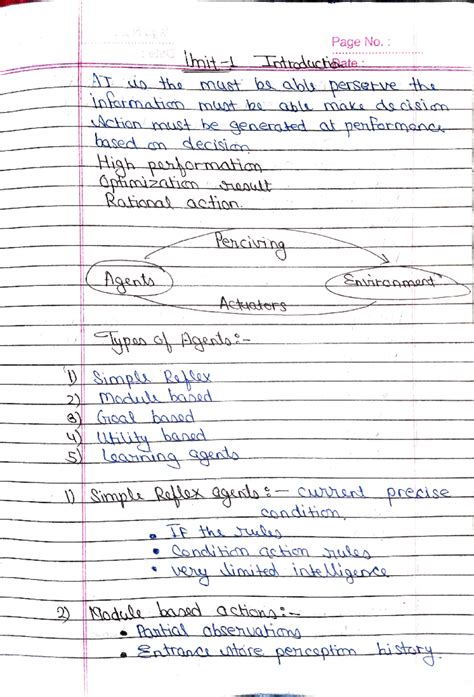 Page No. :
Unit-1 Introduction
Date :
AI is the must be able perserve the
information must be able make decision
Action must be generated at performence
based on decision
High performation
Optimization result
Rational action.
Perciving
Agents
Environment
Actuators
Types of Agents:-
1) Simple Reflex
2) Module based
3) Goal based
4) Utility based
5) Learning agents
1) Simple Reflex agents:- current precise
condition.
• IF the rules
• Condition action rules
• very limited intelligence
2) Module based actions:-
• Partial observations
• Entrance store perception history.